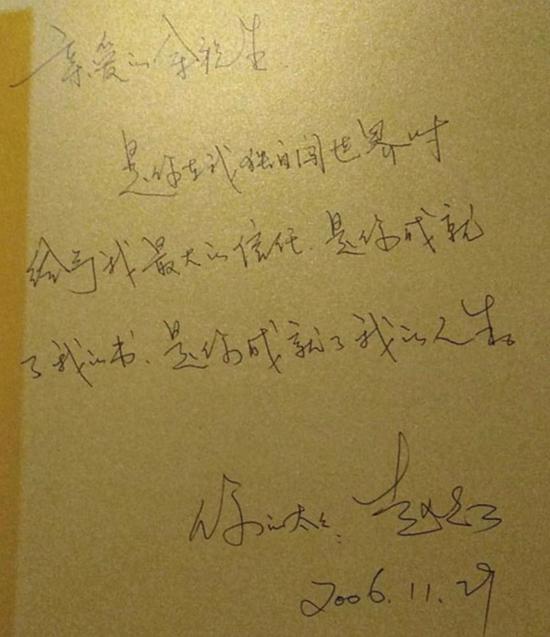 亲爱的余先生
是你在我独自闯世界时
给予我最大的信任、是你成就
了我的书、是你成就了我的人生。
你的太太: 赵红
2006.11.29